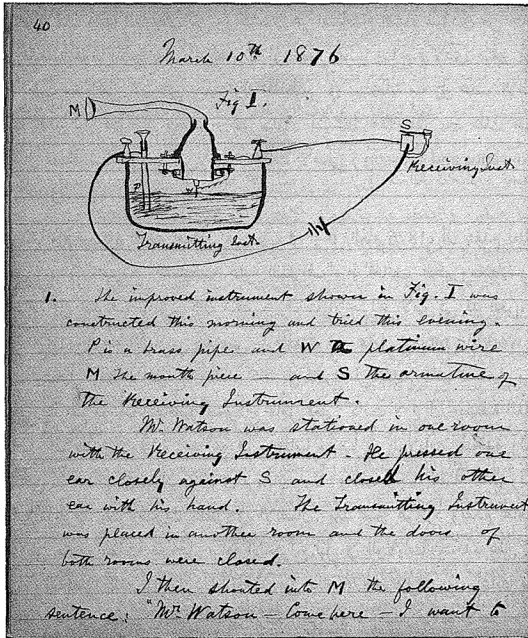 40
March 10th 1876
Fig I.
M
S
Receiving Inst
P
W
Transmitting Inst
1. The improved instrument shown in Fig. I was
constructed this morning and tried this evening.
P is a brass pipe and W the platinum wire
M the mouth piece — and S the armature of
the Receiving Instrument.
Mr. Watson was stationed in one room
with the Receiving Instrument. He pressed one
ear closely against S and closed his other
ear with his hand. The Transmitting Instrument
was placed in another room and the doors of
both rooms were closed.
I then shouted into M the following
sentence: "Mr. Watson — Come here — I want to